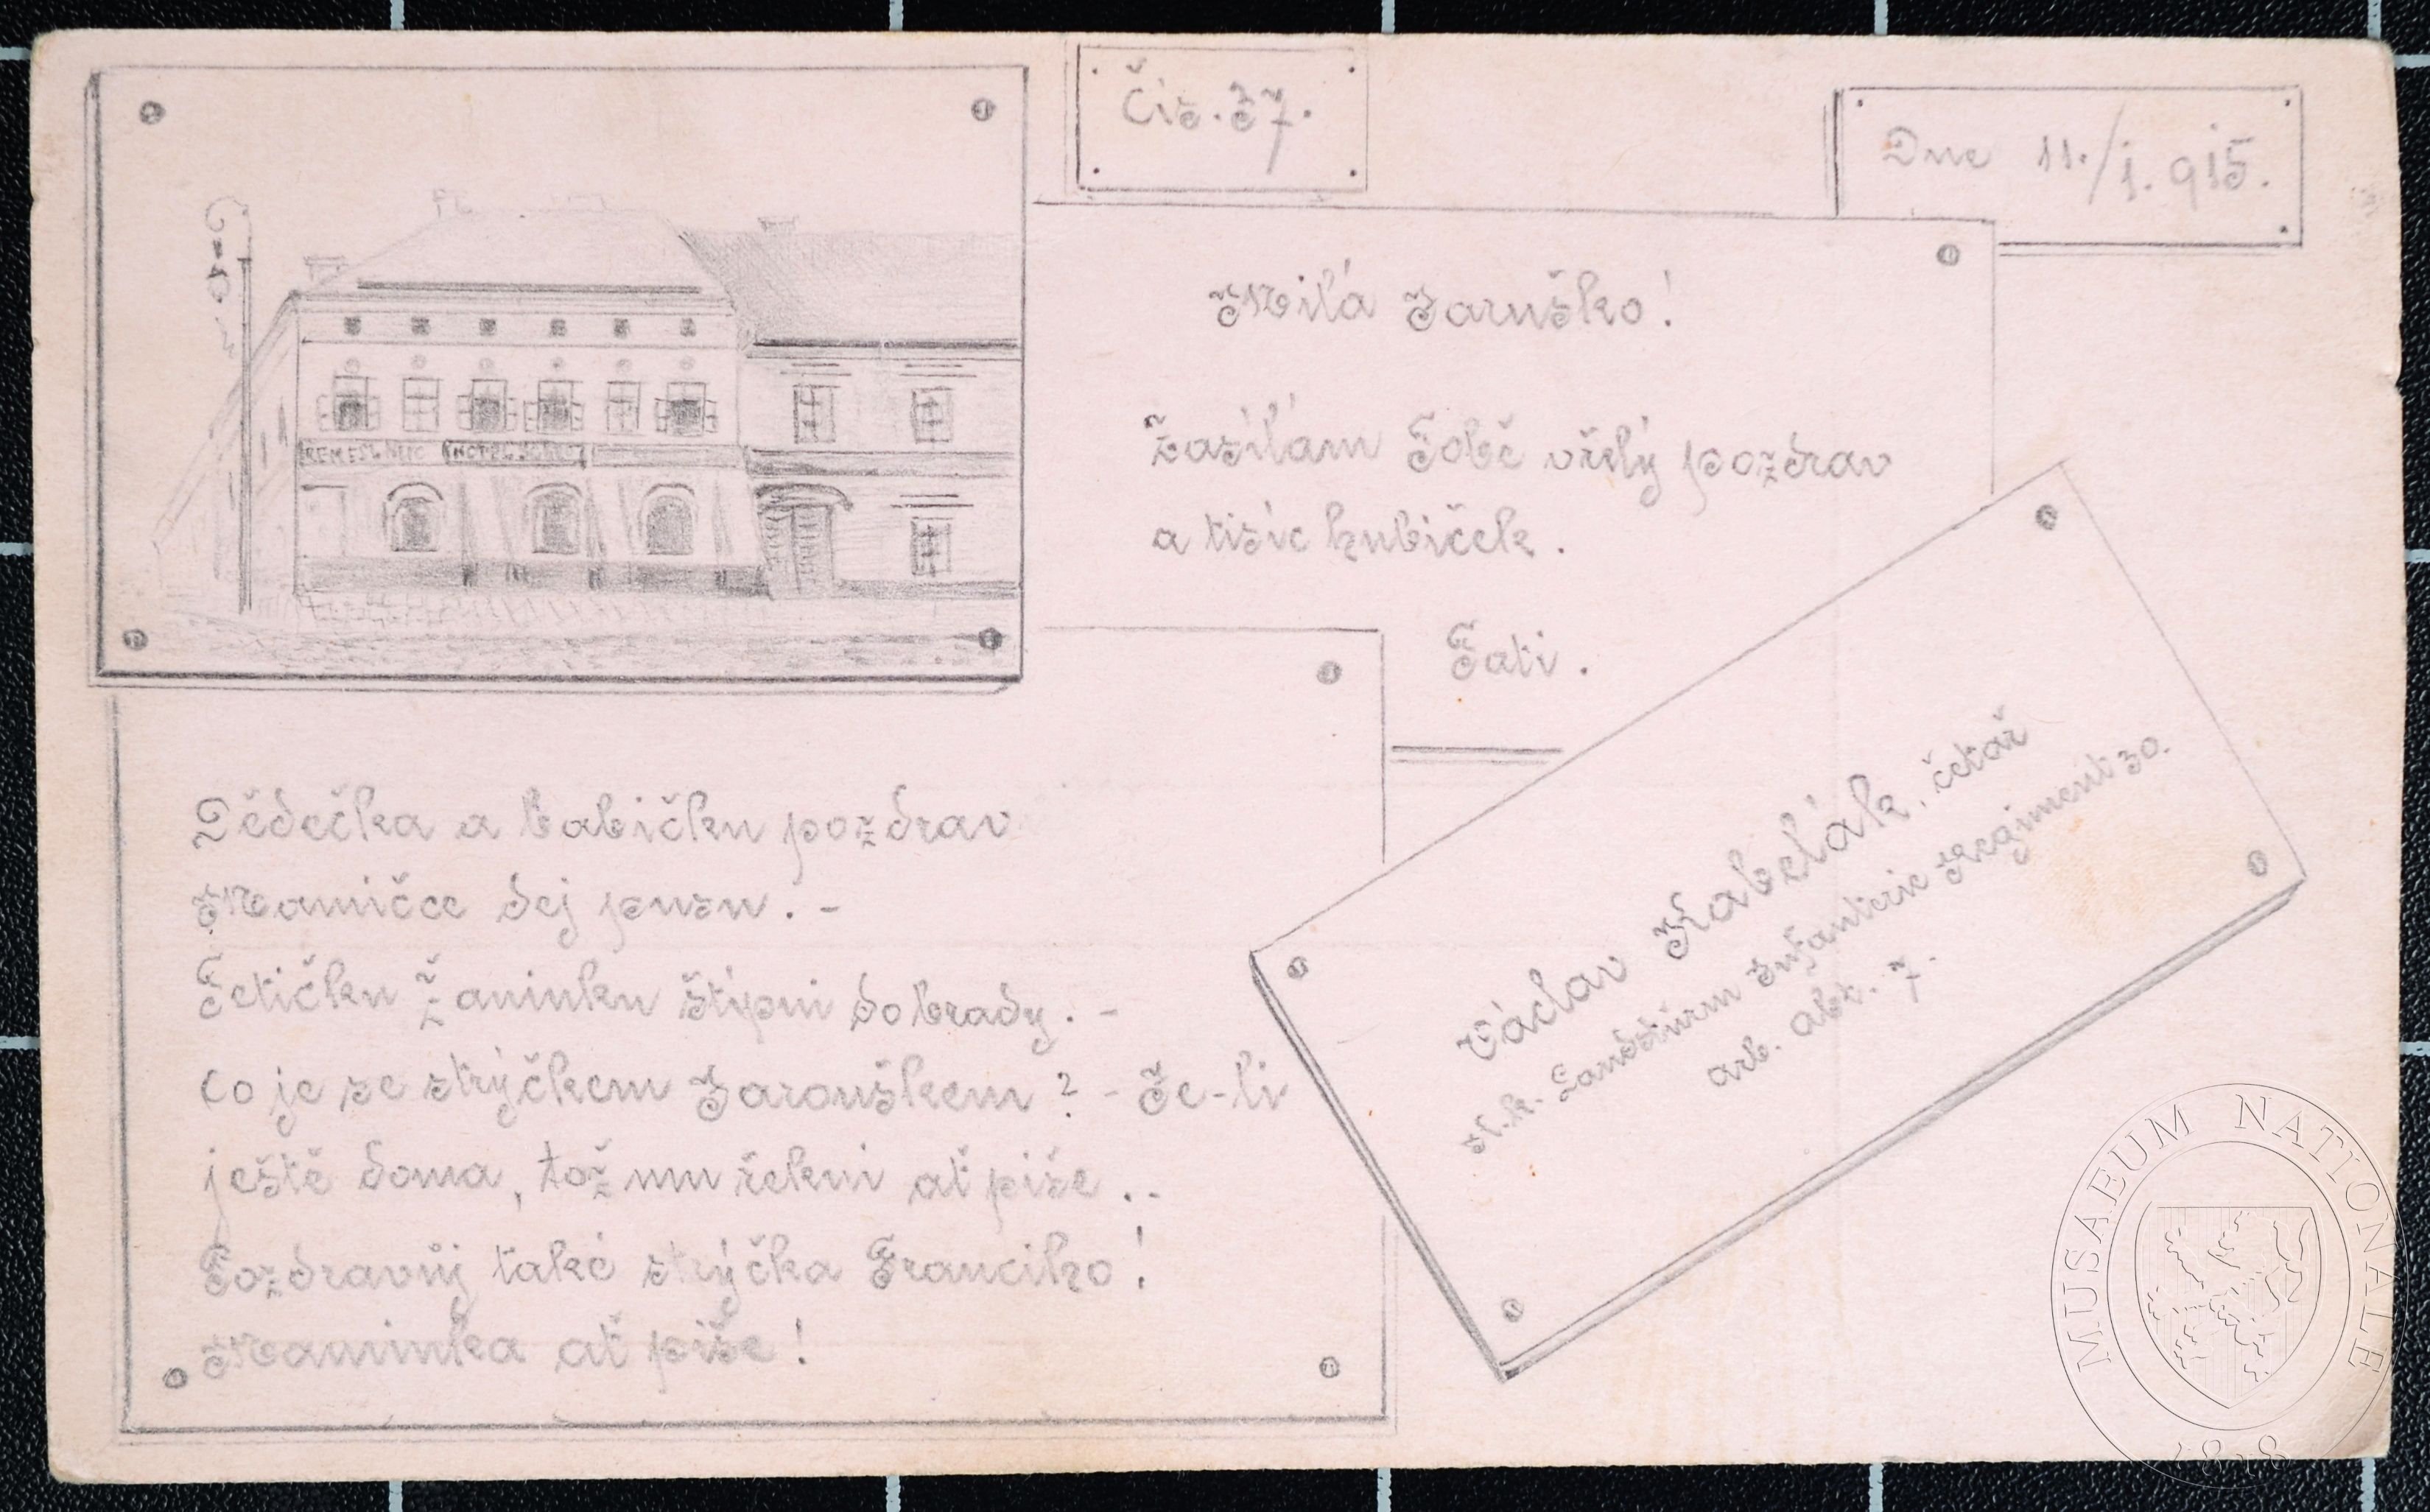 Čís. 37.
Dne 11./1. 915.
Milá Jaruško!
Zasílám Tobě vřelý pozdrav
a tisíc hubiček.
Tati.
REMESLNIC HOTEL
Dědečka a babičku pozdrav
Mamičce dej pusu. -
Tetičku Žaninku štípni do brady. -
Co je se strýčkem Jarouškem? - Je-li
ještě doma, tož mu řekni ať píše..
Pozdravůj také strýčka Franciho!
Maminka ať píše!
Václav Kabelák, četař
K.k. Landsturm Infanterie Regiment 30.
arb. abt. 7.
MUSAEUM NATIONALE
1818